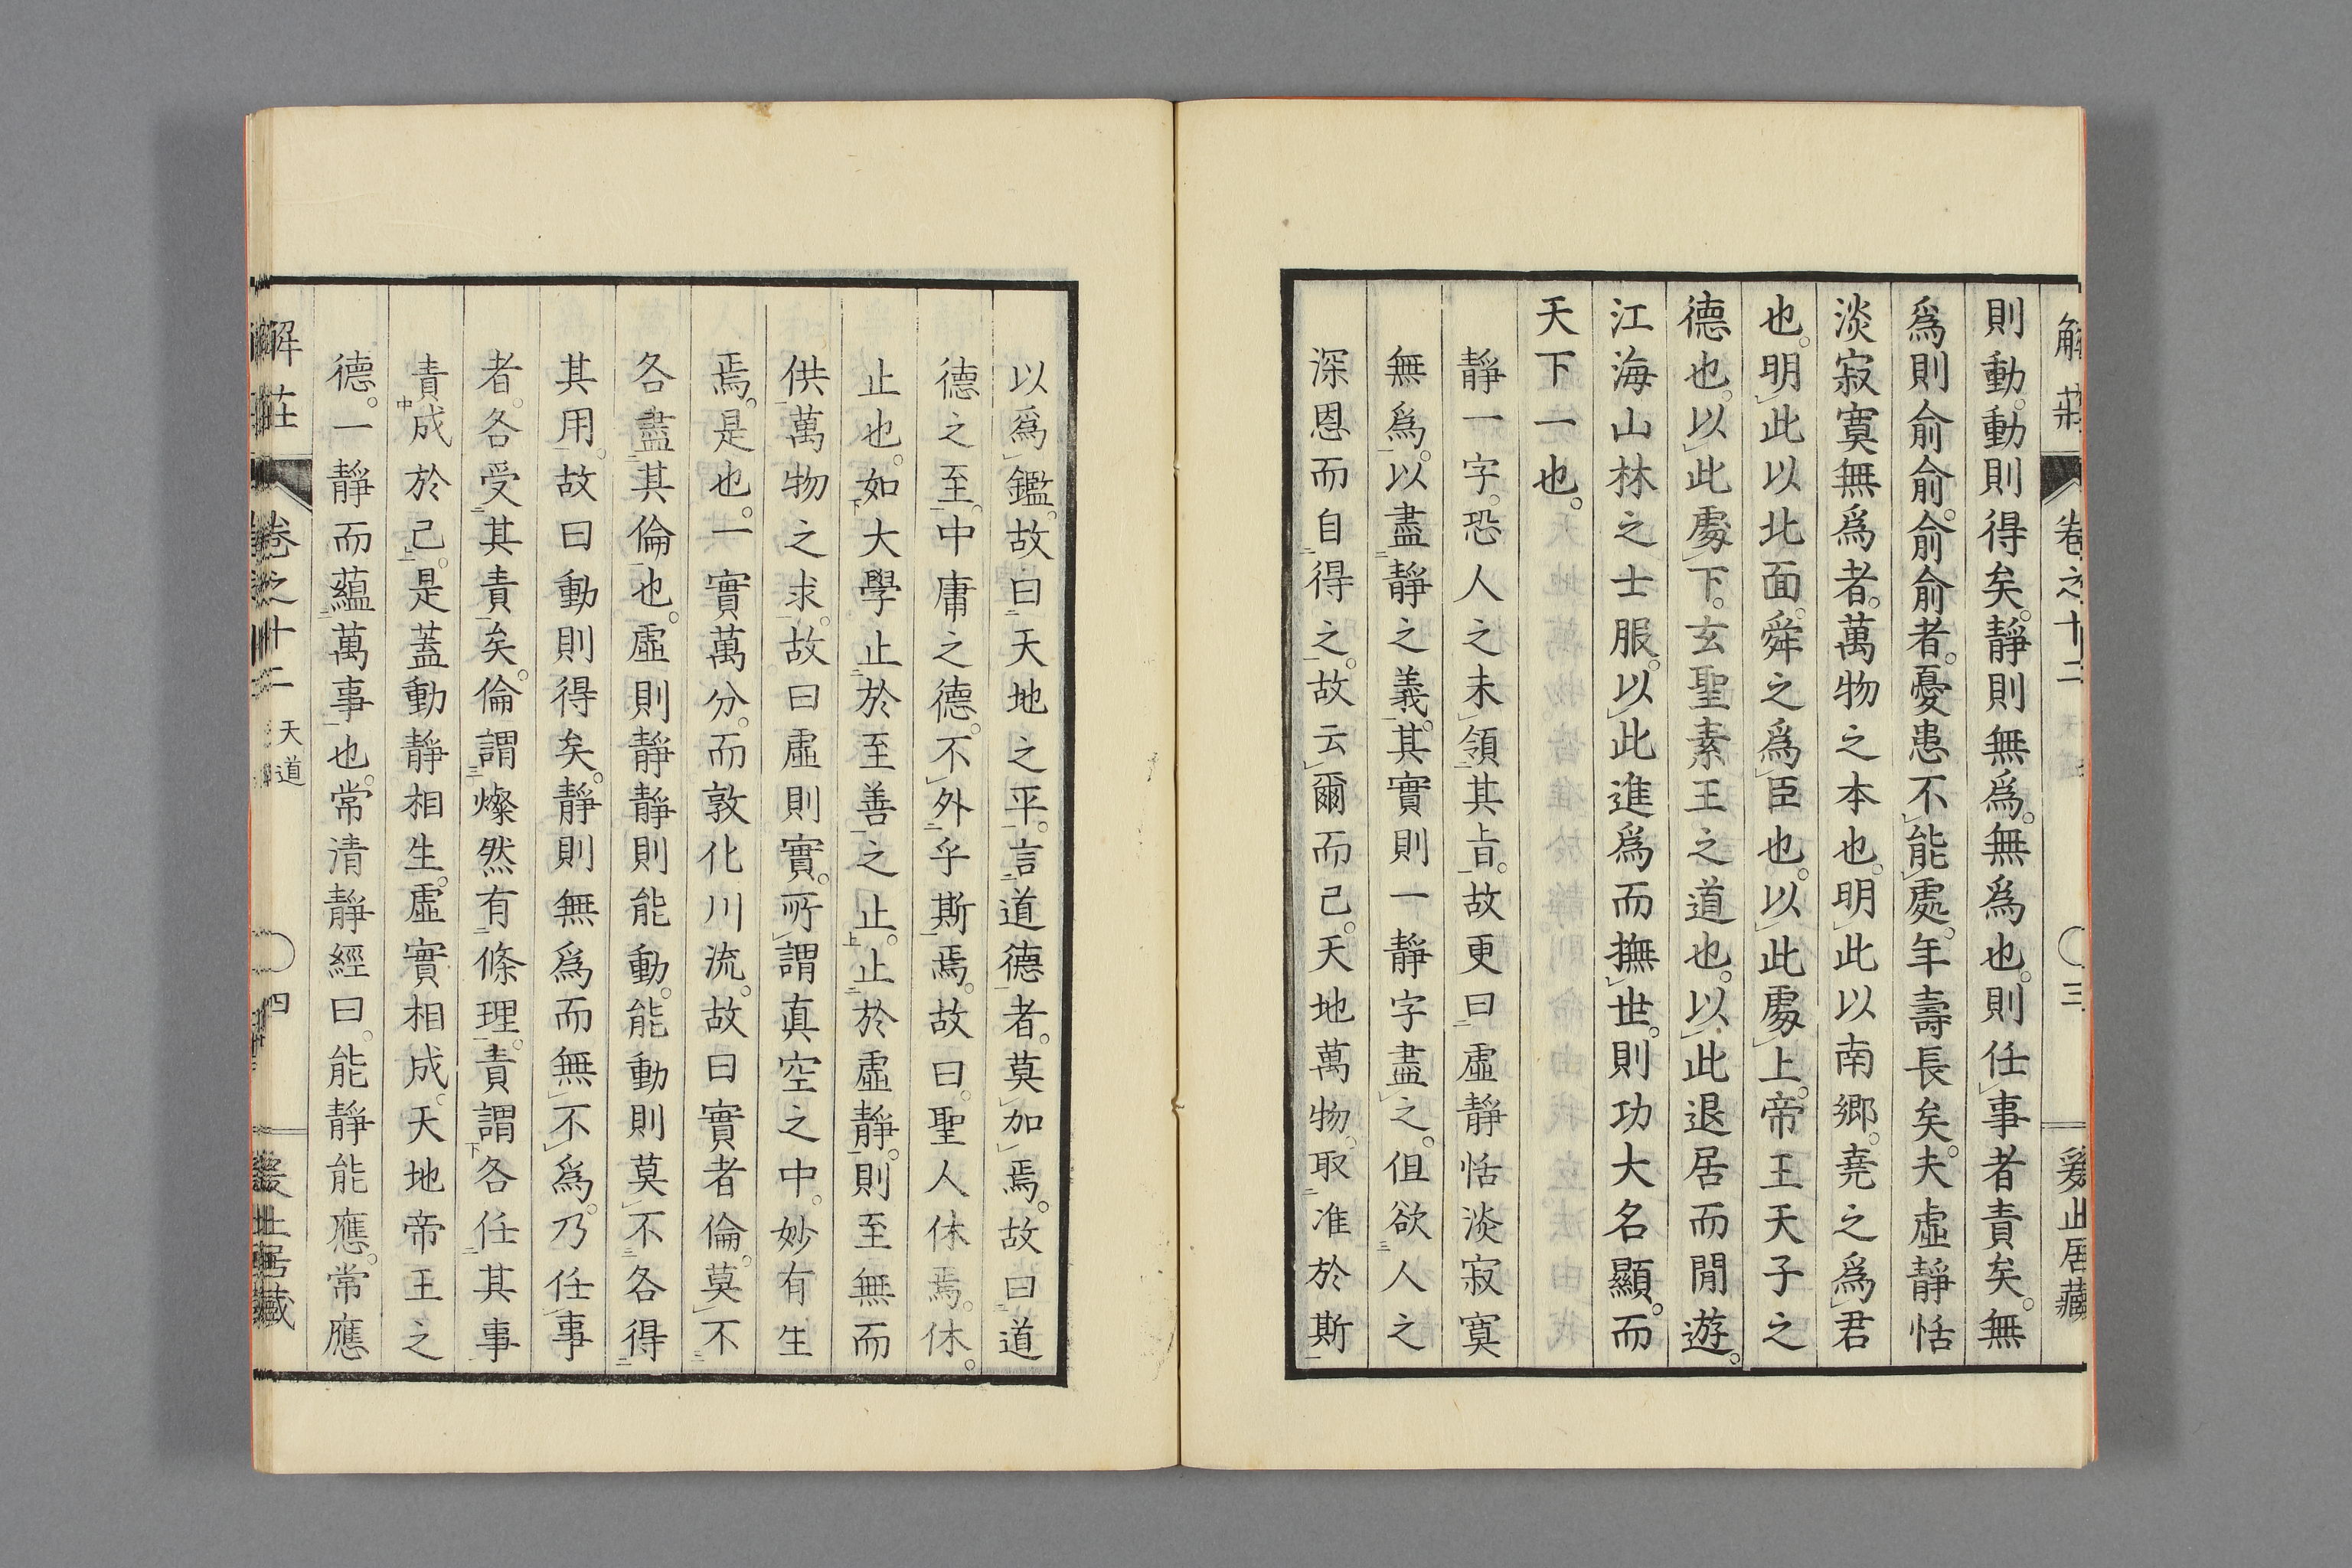 解莊 卷之十二 三 爰止居藏
則動。動則得矣。靜則無爲。無爲也。則任事者責矣。無
爲則俞俞。俞俞者。憂患不能處。年壽長矣。夫虛靜恬
淡寂寞無爲者。萬物之本也。明此以南鄉。堯之爲君
也。明此以北面。舜之爲臣也。以此處上。帝王天子之
德也。以此處下。玄聖素王之道也。以此退居而閒遊。
江海山林之士服。以此進爲而撫世。則功大名顯。而
天下一也。
靜一字。恐人之未領其旨。故更曰虛靜恬淡寂寞
無爲。以盡靜之義。其實則一靜字盡之。但欲人之
深思而自得之。故云爾而已。天地萬物。取准於斯
以爲鑑。故曰天地之平。言道德者。莫加焉。故曰道
德之至。中庸之德。不外乎斯焉。故曰。聖人休焉。休。
止也。如大學止於至善之止。止於虛靜。則至無而
供萬物之求。故曰虛則實。所謂真空之中。妙有生
焉。是也。一實萬分。而敦化川流。故曰實者倫。莫不
各盡其倫也。虛則靜靜則能動。能動則莫不各得
其用。故曰動則得矣。靜則無爲而無不爲。乃任事
者。各受其責矣。倫謂燦然有條理。責謂各任其事
責成於己。是蓋動靜相生。虛實相成。天地帝王之
德。一靜而蘊萬事也。常清靜經曰。能靜能應。常應
解莊 卷之十二 天道 四 爰止居藏